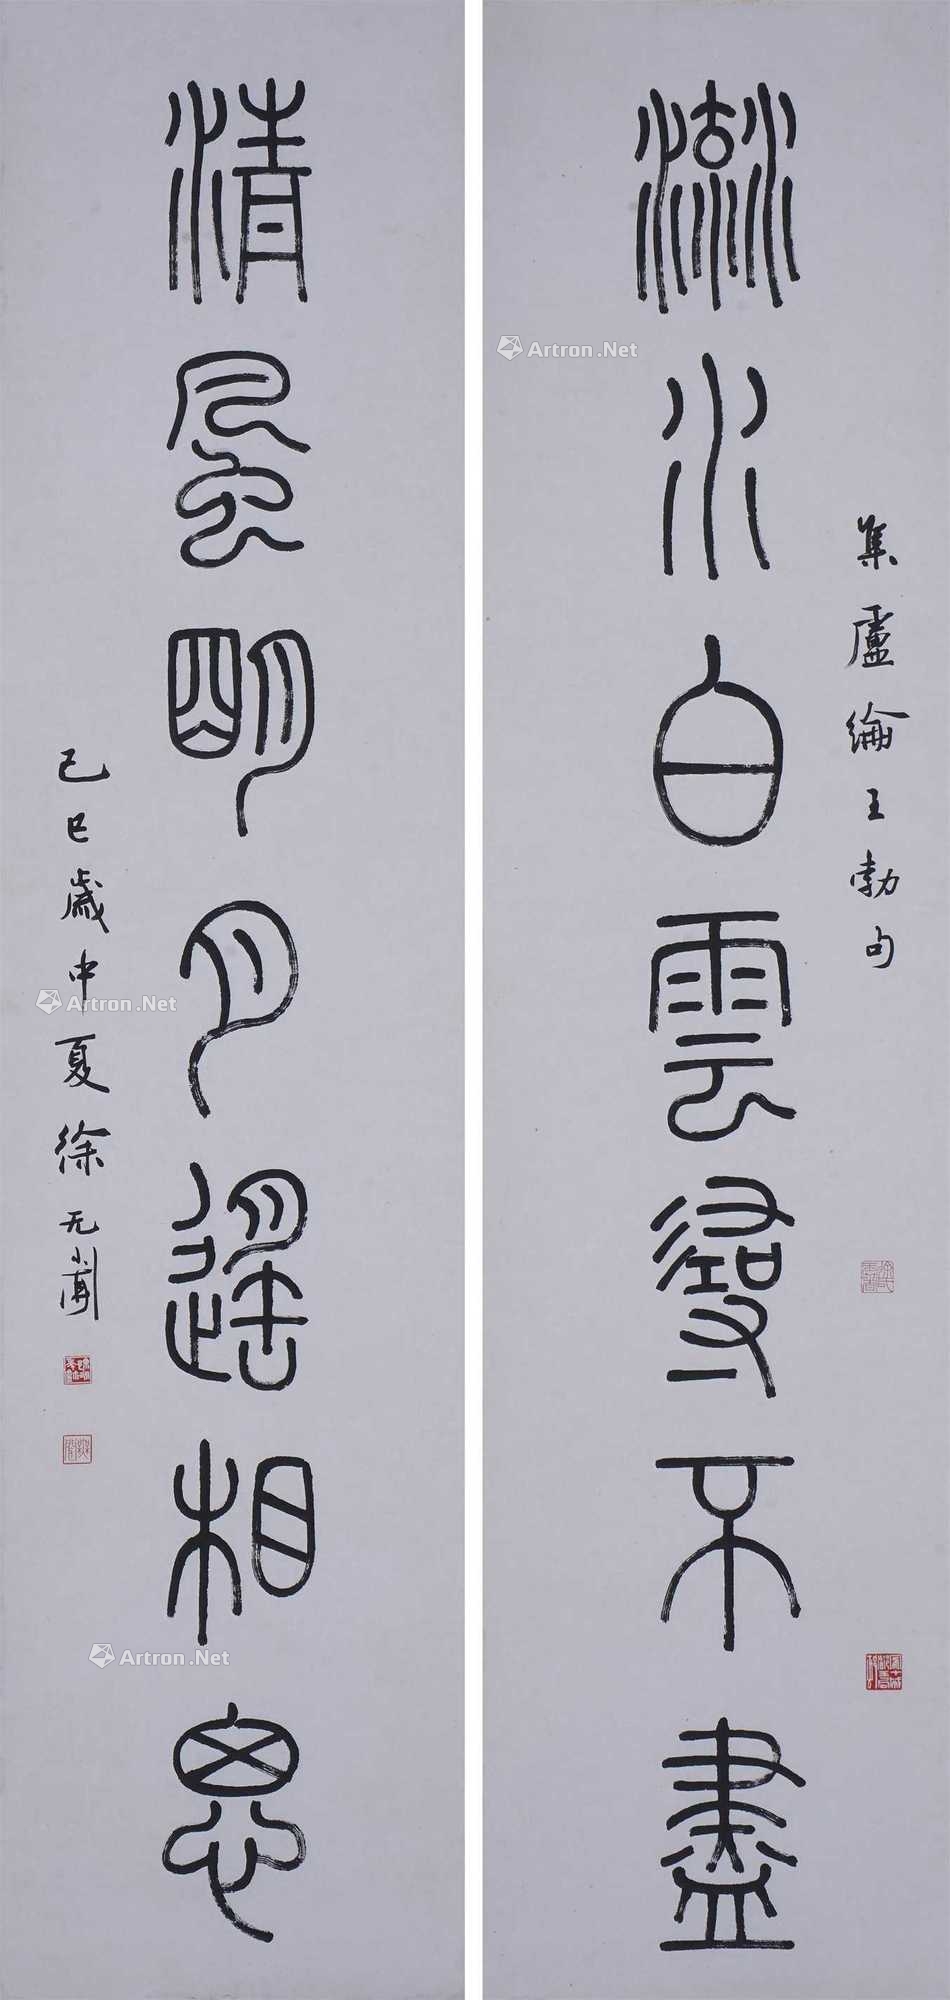 流水白雲尋不盡
集盧綸王勃句
清風明月遙相思
己巳歲中夏徐无聞
Artron.Net
Artron.Net
Artron.Net